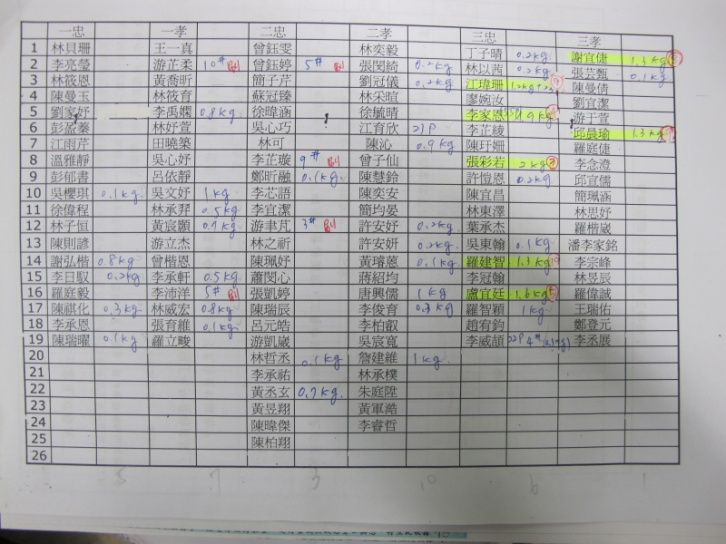 一忠 一孝 二忠 二孝 三忠 三孝
1 林貝珊 王一真 曾鈺雯 林奕毅 丁子晴 0.2kg 謝宜倢 1.3kg
2 李亮瑩 游芷柔 10# 曾鈺婷 5# 張閔綺 0.2kg 林以茜 0.2kg 張芸甄 0.1kg
3 林筱恩 黃喬昕 簡子芹 劉冠儀 0.2kg 江瑋珊 陳曼倩
4 陳曼玉 林筱育 蘇冠臻 林采暄 廖婉汝 劉宜潔
5 劉家妤 李禹嫻 0.8kg 徐暐涵 徐毓晴 李家恩 1.9kg 游于萱
6 彭盈蓁 林妤萱 吳心巧 江育欣 27P 李芷綾 邱晨瑜 1.3kg
7 江雨芹 田曉築 林可 陳沁 0.9kg 陳玗姍 羅庭倢
8 溫雅靜 吳心妤 李芷璇 9# 曾子仙 張彩若 2kg 李念澄
9 彭郁書 呂依靜 鄭昕融 0.1kg 陳慧鈴 許愷恩 0.2kg 邱宜儒
10 吳櫻琪 0.1kg 吳文妤 1kg 李芯語 陳奕安 陳宜昌 簡珮涵
11 徐偉程 林承羿 0.5kg 李宜潔 簡均晏 林東澤 林思妤
12 林子恒 黃宸顥 0.7kg 游聿芃 3# 許安妤 0.2kg 葉承杰 羅楷崴
13 陳則諺 游立杰 林之祈 許安妍 0.2kg 吳東翰 0.1kg 潘李家銘
14 謝弘楷 0.8kg 曾楷恩 陳珮妤 黃堉蒽 0.1kg 羅建智 1.3kg 李宗峰
15 李日馭 0.2kg 李承軒 0.5kg 蕭閔心 蔣紹均 李冠翰 林昱辰
16 羅庭毅 李沛洋 5# 張凱婷 唐興儒 1kg 盧宜廷 1.6kg 羅偉誠
17 陳祺化 0.3kg 林威宏 0.8kg 陳瑞辰 李俊育 0.3kg 羅智顥 1kg 王瑞佑
18 李承恩 張育維 0.1kg 呂元皓 李柏叡 趙宥鈞 鄭登元
19 陳瑞曜 0.1kg 羅立畯 游凱崴 吳宸寬 李威頡 李丞展
20 林哲丞 0.1kg 詹建維 1kg
21 李承祐 林承樸
22 黃丞玄 0.7kg 朱庭陞
23 黃昱翔 黃軍澔
24 陳暐傑 李睿哲
25 陳柏翔
26
5 7 3 10 6 1